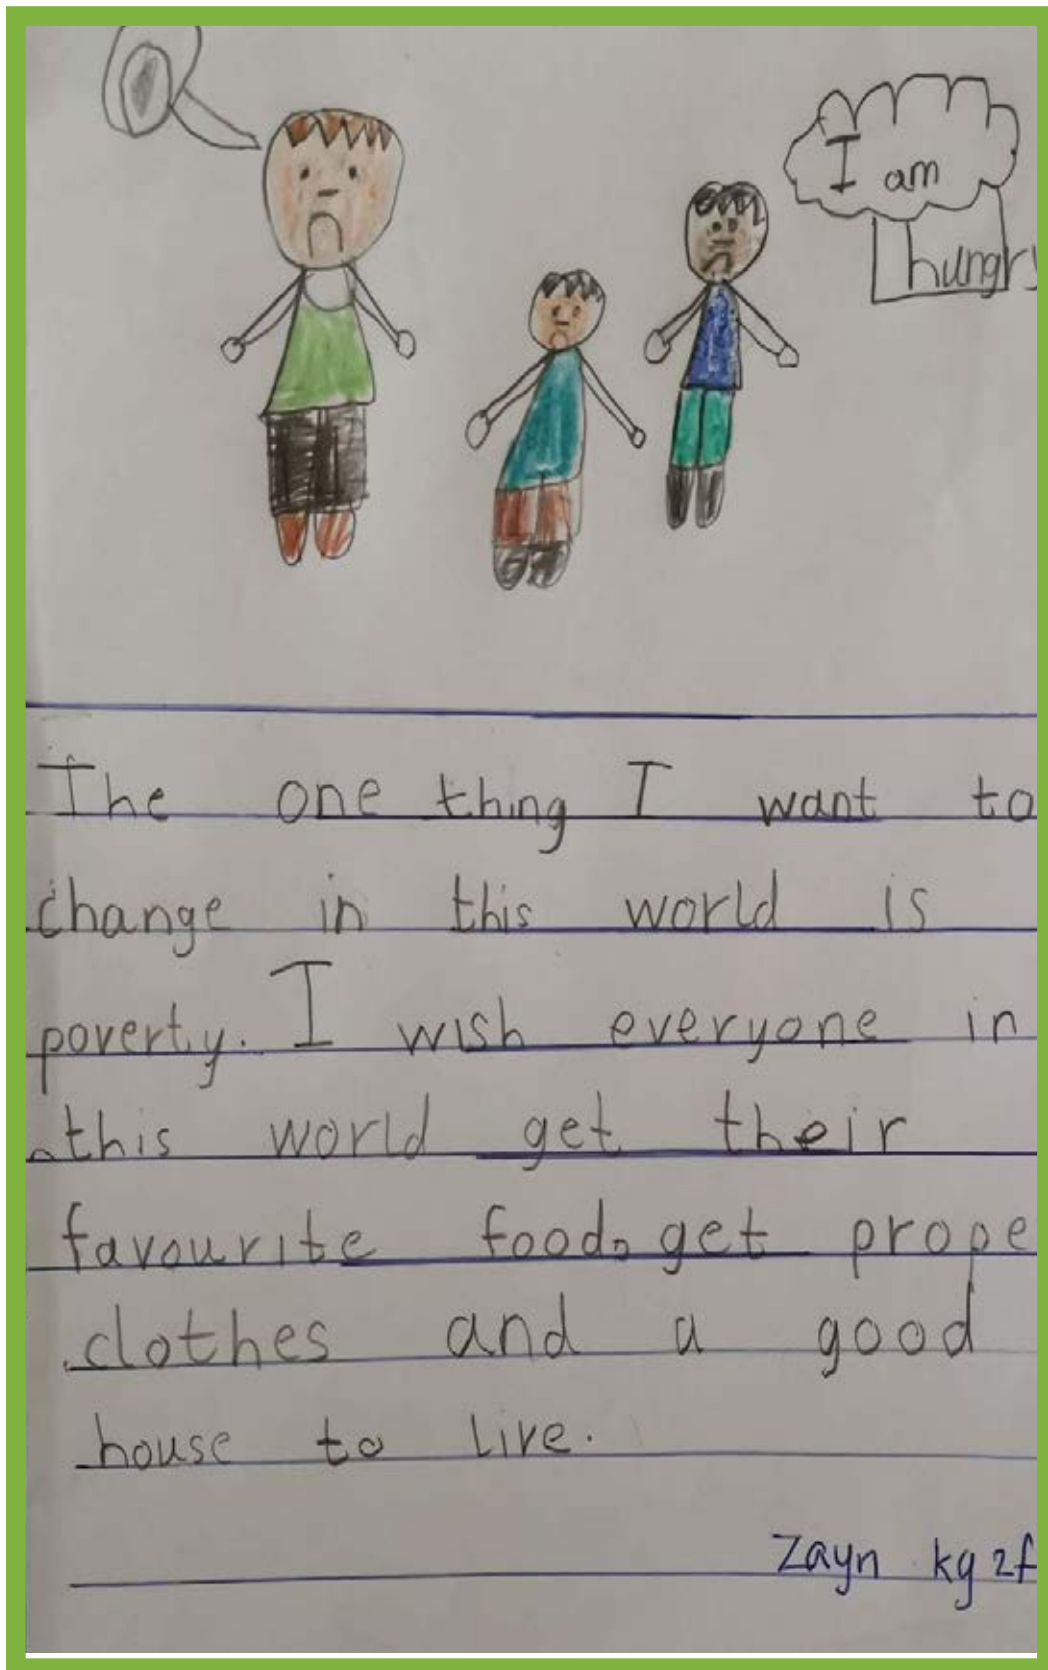 I am
hungry
The one thing I want to
change in this world is
poverty. I wish everyone in
this world get their
favourite food, get prope
clothes and a good
house to live.
Zayn kg 2f